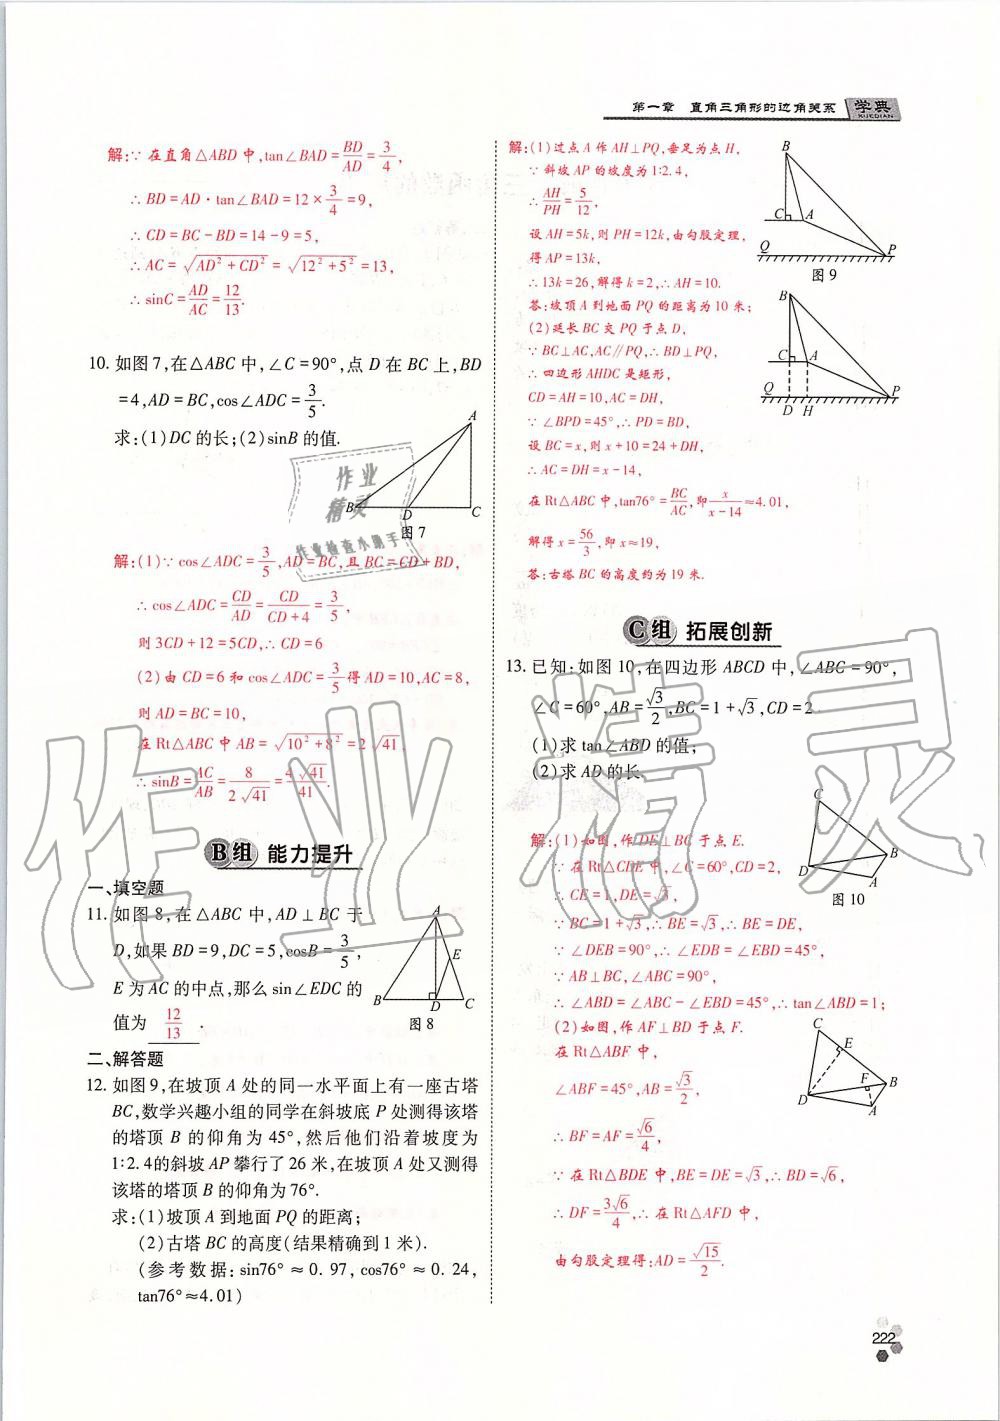 第一章 直角三角形的边角关系 学典
XUEDIAN
解:∵在直角△ABD中,tan∠BAD=BD/AD=3/4,
∴BD=AD·tan∠BAD=12×3/4=9,
∴CD=BC-BD=14-9=5,
∴AC=√(AD²+CD²)=√(12²+5²)=13,
∴sinC=AD/AC=12/13.
10.如图7,在△ABC中,∠C=90°,点D在BC上,BD
=4,AD=BC,cos∠ADC=3/5.
求:(1)DC的长;(2)sinB的值.
A
B D C
图7
解:(1)∵cos∠ADC=3/5,AD=BC,且BC=CD+BD,
∴cos∠ADC=CD/AD=CD/(CD+4)=3/5,
则3CD+12=5CD,∴CD=6
(2)由CD=6和cos∠ADC=3/5得AD=10,AC=8,
则AD=BC=10,
在Rt△ABC中AB=√(10²+8²)=2√41,
∴sinB=AC/AB=8/(2√41)=4√41/41.
B组 能力提升
一、填空题
11.如图8,在△ABC中,AD⊥BC于
D,如果BD=9,DC=5,cosB=3/5,
E为AC的中点,那么sin∠EDC的
值为 12/13 .
A
E
B D C
图8
二、解答题
12.如图9,在坡顶A处的同一水平面上有一座古塔
BC,数学兴趣小组的同学在斜坡底P处测得该塔
的塔顶B的仰角为45°,然后他们沿着坡度为
1∶2.4的斜坡AP攀行了26米,在坡顶A处又测得
该塔的塔顶B的仰角为76°.
求:(1)坡顶A到地面PQ的距离;
(2)古塔BC的高度(结果精确到1米).
(参考数据:sin76°≈0.97,cos76°≈0.24,
tan76°≈4.01)
解:(1)过点A作AH⊥PQ,垂足为点H,
∵斜坡AP的坡度为1∶2.4,
∴AH/PH=5/12,
设AH=5k,则PH=12k,由勾股定理,
得AP=13k,
∴13k=26,解得k=2,∴AH=10.
答:坡顶A到地面PQ的距离为10米;
(2)延长BC交PQ于点D,
∵BC⊥AC,AC∥PQ,∴BD⊥PQ,
∴四边形AHDC是矩形,
CD=AH=10,AC=DH,
∵∠BPD=45°,∴PD=BD,
设BC=x,则x+10=24+DH,
∴AC=DH=x-14,
在Rt△ABC中,tan76°=BC/AC,即x/(x-14)≈4.01,
解得x=56/3,即x≈19,
答:古塔BC的高度约为19米.
B
C A
Q P
图9
B
C A
Q P
D H
C组 拓展创新
13.已知:如图10,在四边形ABCD中,∠ABC=90°,
∠C=60°,AB=√3/2,BC=1+√3,CD=2.
(1)求tan∠ABD的值;
(2)求AD的长.
C
B
D
A
图10
解:(1)如图,作DE⊥BC于点E.
∵在Rt△CDE中,∠C=60°,CD=2,
∴CE=1,DE=√3,
∵BC=1+√3,∴BE=√3,∴BE=DE,
∵∠DEB=90°,∴∠EDB=∠EBD=45°,
∵AB⊥BC,∠ABC=90°,
∴∠ABD=∠ABC-∠EBD=45°,∴tan∠ABD=1;
(2)如图,作AF⊥BD于点F.
在Rt△ABF中,
∠ABF=45°,AB=√3/2,
∴BF=AF=√6/4,
∵在Rt△BDE中,BE=DE=√3,∴BD=√6,
∴DF=3√6/4,∴在Rt△AFD中,
由勾股定理得:AD=√15/2.
C
E
F B
D
A
222
作业
精灵
作业检查小助手
作业精灵